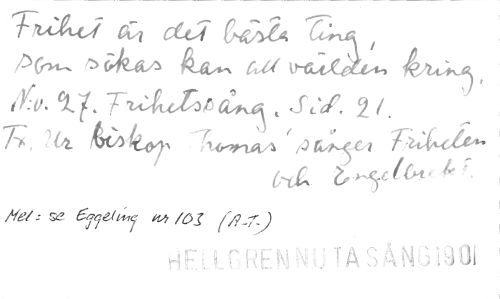 Frihet är det bästa ting,
som sökas kan all världen kring.
N:o. 27. Frihetssång. Sid. 21.
Tr. Ur Biskop Thomas' sånger Friheten
och Engelbrekt.
Mel: se Eggeling nr 103 (A-T.)
HELLGREN NUTA SÅNG 1901